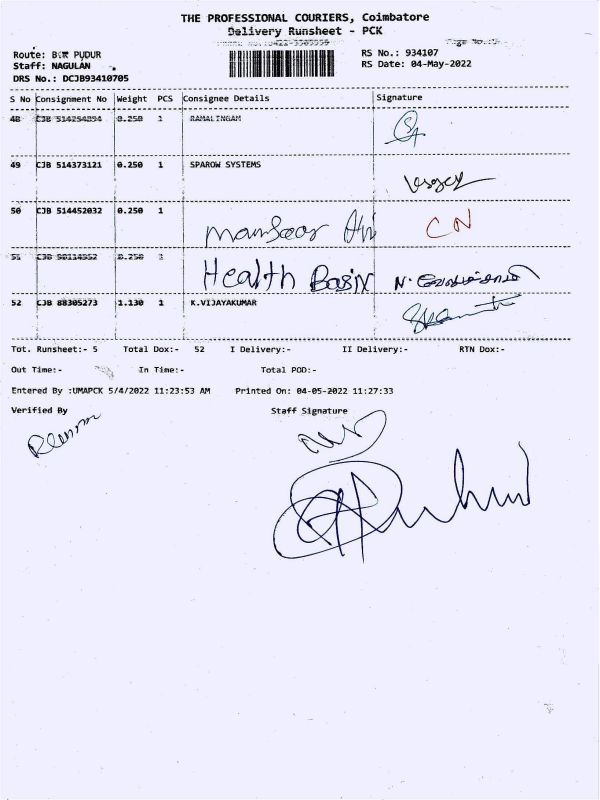 THE PROFESSIONAL COURIERS, Coimbatore
Delivery Runsheet - PCK
Route: PUDUR
RS No.: 934107
Staff: NAGULAN
RS Date: 04-May-2022
DRS No.: DCJB93410705
S No Consignment No Weight PCS Consignee Details Signature
48 CJB 514254894 0.250 1 RAMALINGAM
49 CJB 514373121 0.250 1 SPAROW SYSTEMS
50 CJB 514452032 0.250 1 Mansoor CN
51 CJB 0.250 1 Health Basix
52 CJB 88305273 1.130 1 K.VIJAYAKUMAR
Tot. Runsheet:- 5 Total Dox:- 52 I Delivery:- II Delivery:- RTN Dox:-
Out Time:- In Time:- Total POD:-
Entered By :UMAPCK 5/4/2022 11:23:53 AM Printed On: 04-05-2022 11:27:33
Verified By Staff Signature